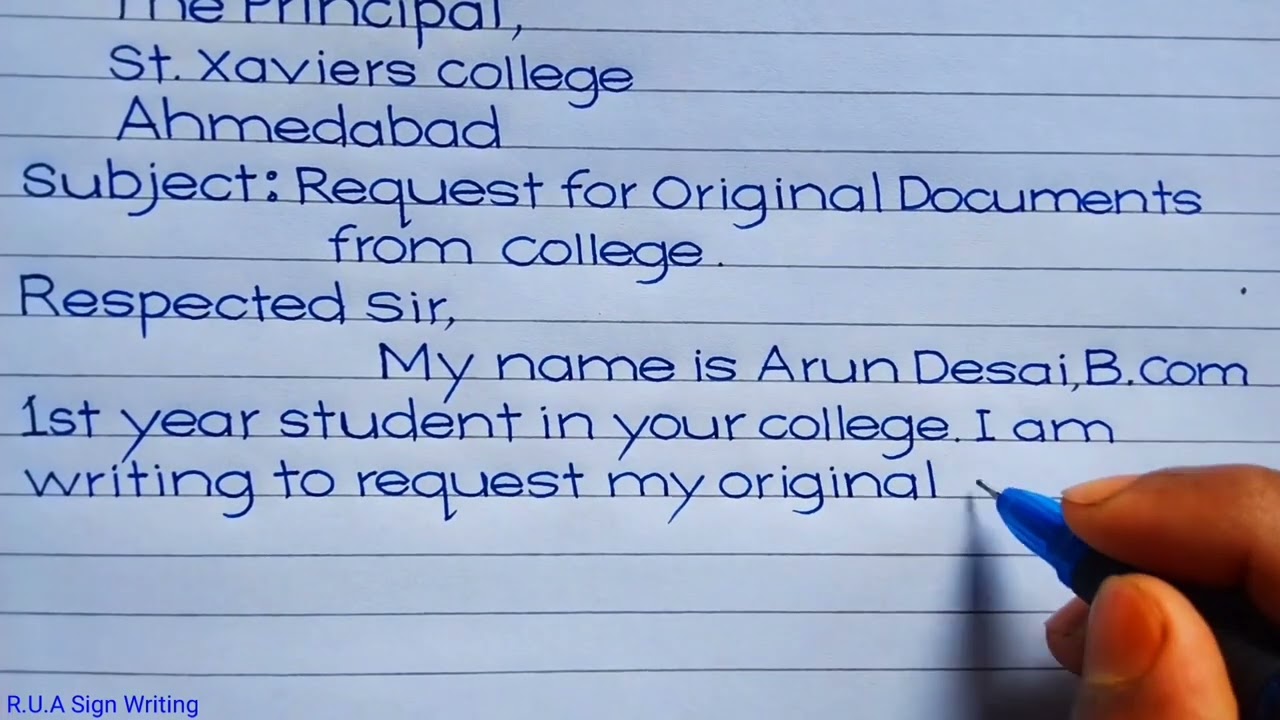 The Principal,
St. Xaviers college
Ahmedabad
Subject: Request for Original Documents
from college.
Respected Sir,
My name is Arun Desai, B.com
1st year student in your college. I am
writing to request my original
R.U.A Sign Writing